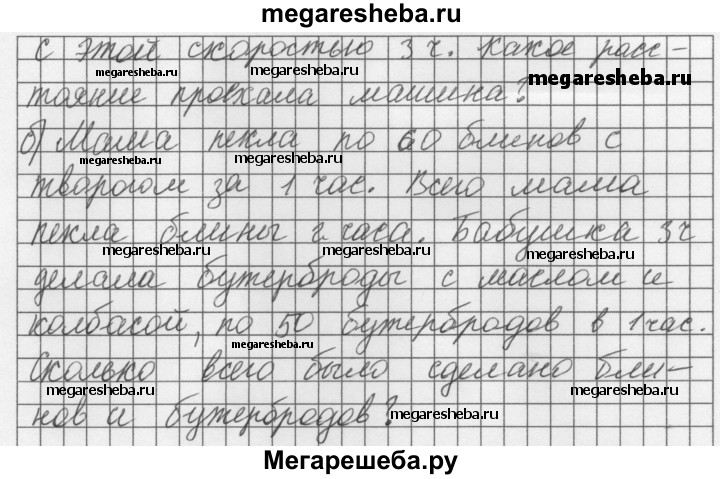 megaresheba.ru
с этой скоростью 3 ч. Какое расс-
megaresheba.ru megaresheba.ru megaresheba.ru
тояние проехала машина?
б) Мама пекла по 60 блинов с
megaresheba.ru megaresheba.ru
творогом за 1 час. Всего мама
пекла блины 2 часа. Бабушка 3 ч
megaresheba.ru megaresheba.ru megaresheba.ru
делала бутерброды с маслом и
колбасой, по 50 бутербродов в 1 час.
megaresheba.ru
Сколько всего было сделано бли-
megaresheba.ru megaresheba.ru
нов и бутербродов?
megaresheba.ru
Мегарешеба.ру